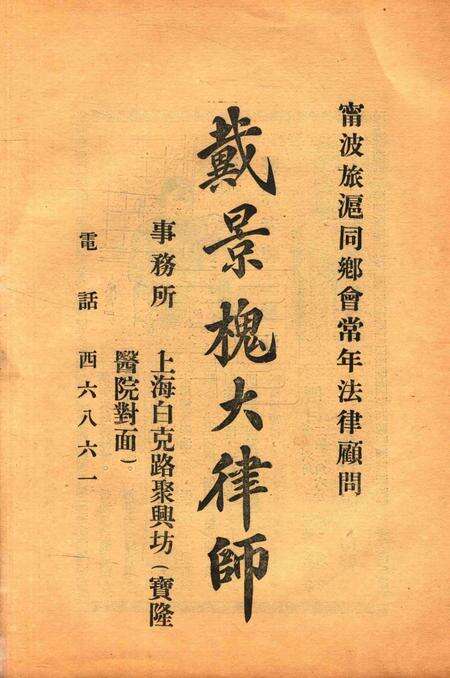 甯波旅滬同鄉會常年法律顧問
戴景槐大律師
事務所 上海白克路聚興坊（寶隆
醫院對面）
電話 西六八六一